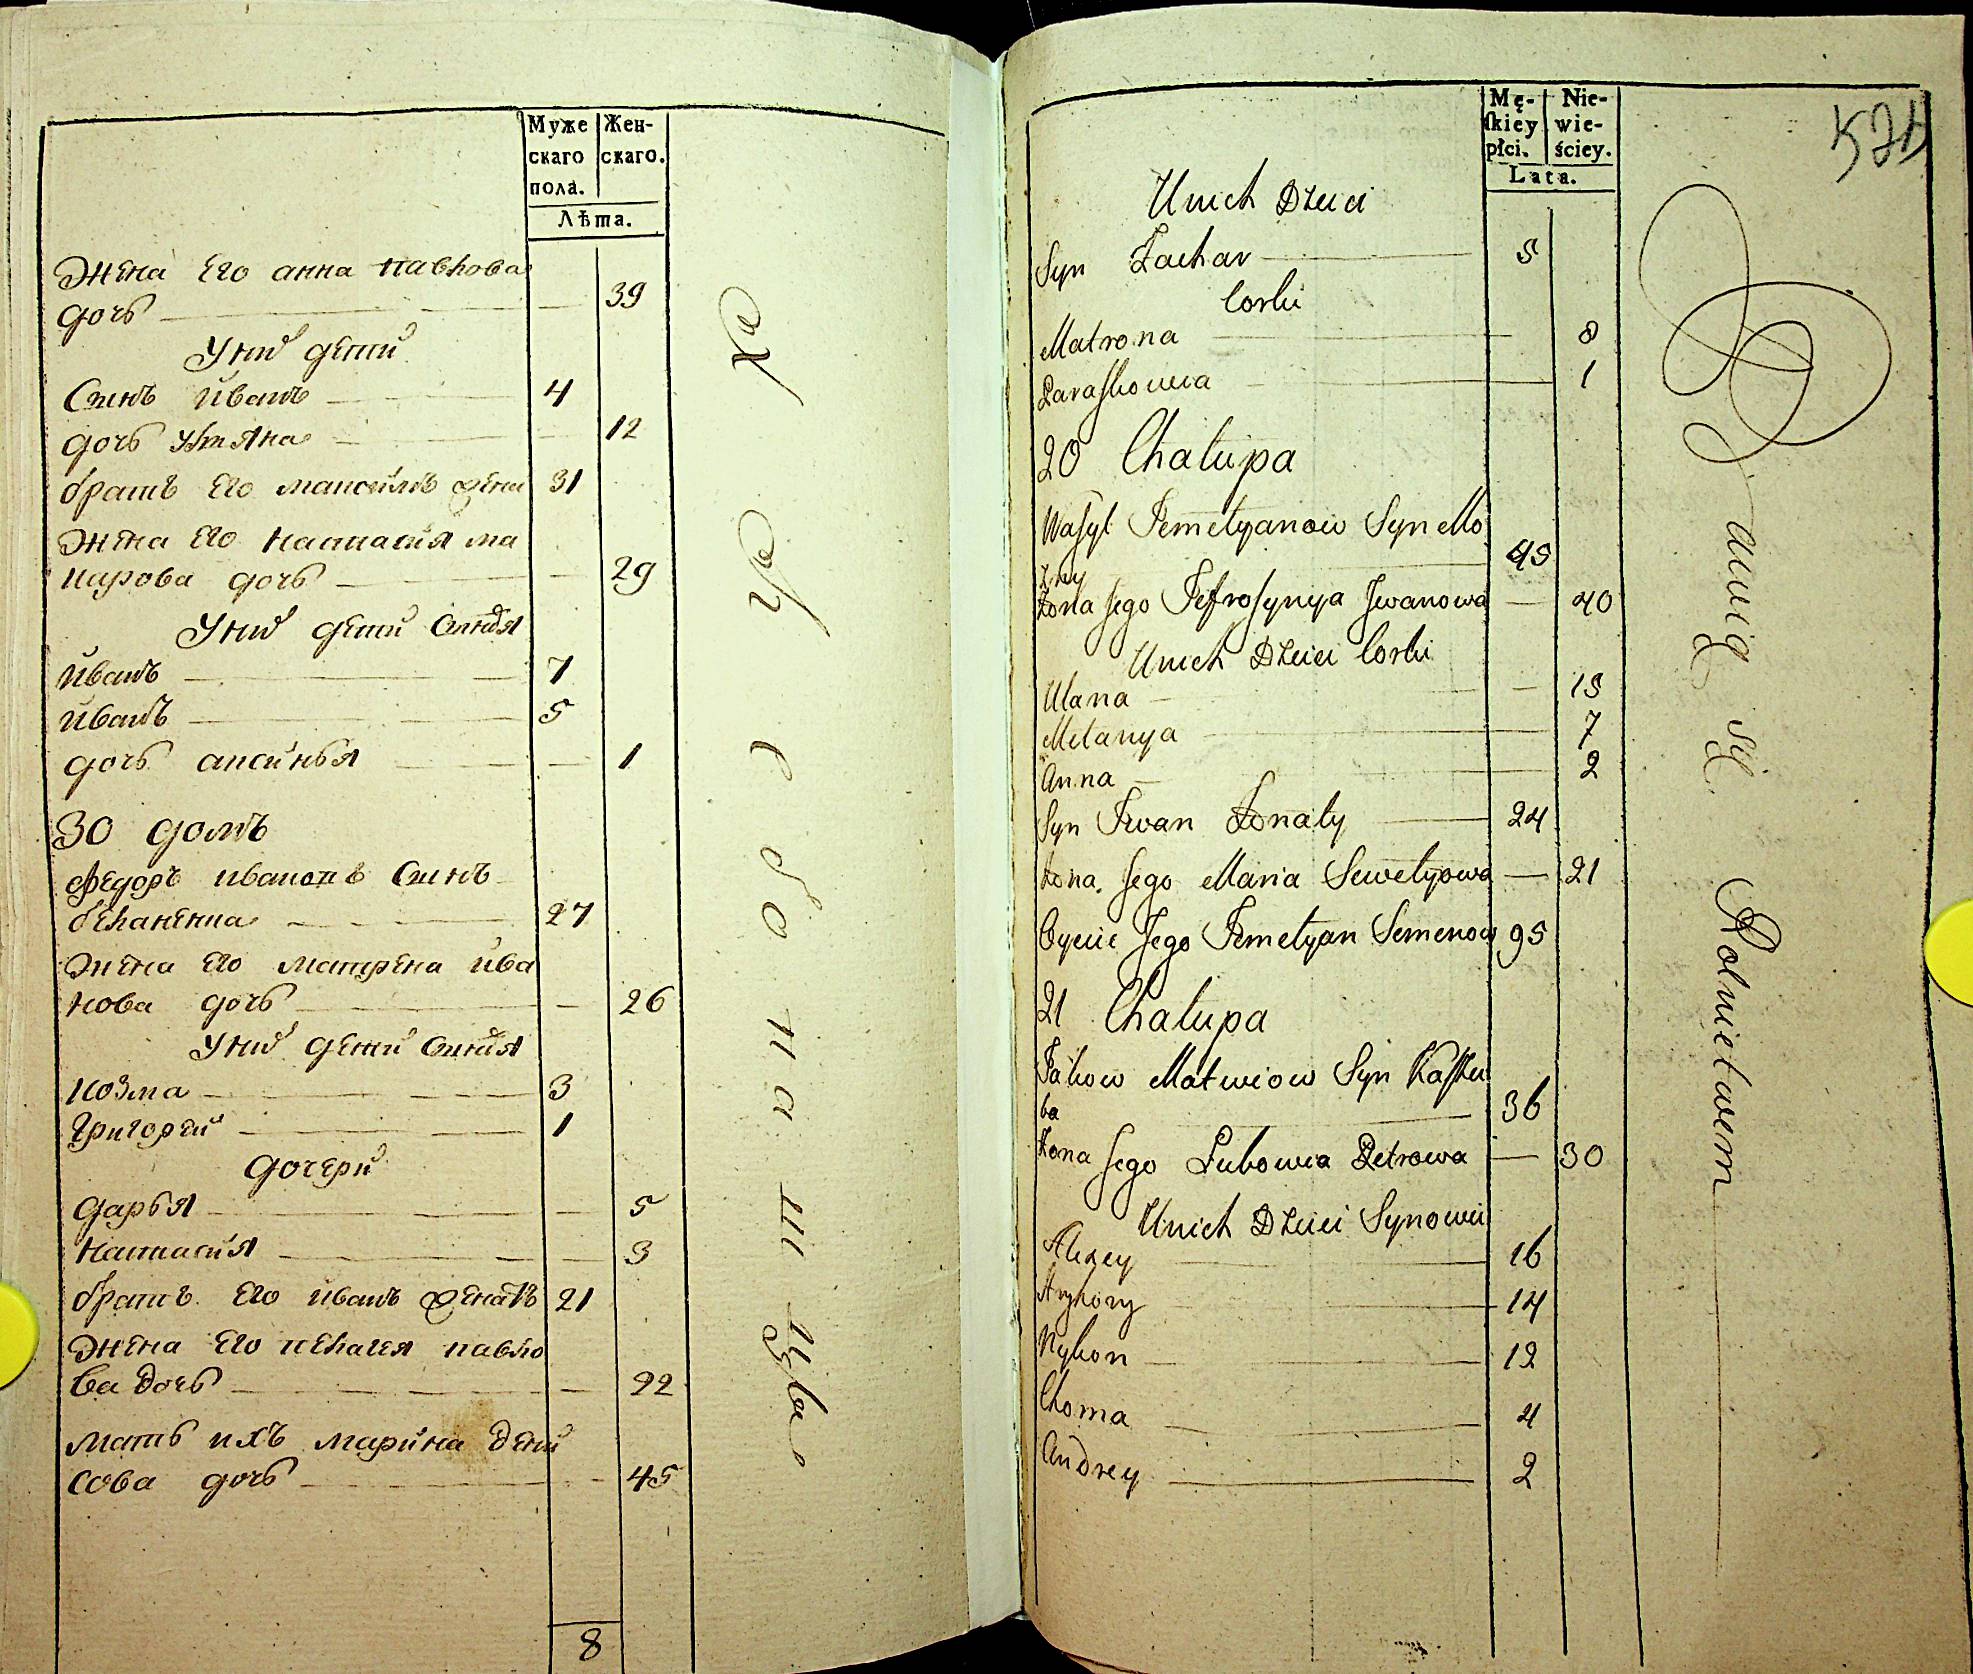 Муже
скаго
пола.
Жен-
скаго.
Лѣта.
Жена его анна павлова
дочь 39
У них дети
Сынъ иванъ 4
дочь улияна 12
братъ его максимъ женат 31
Жена его настасия ма
карова дочь 29
У них дети Сыновя
иванъ 7
иванъ 5
дочь аксинья 1
30 домъ
федоръ ивановъ Сынъ
27
Жена его матрена ива
нова дочь 26
У них дети Сыновя
козма 3
Григорей 1
дочери
дарья 5
настасия 3
братъ его иванъ женатъ 21
Жена его пелагея павло
ва дочь 22
мать ихъ марина дени
сова дочь 45
8
Mę-
skiey
płci.
Nie-
wie-
ściey.
Lata.
Unich Dzieci
Syn Zachar 5
Corki
Matrona 8
Paraskowia 1
20 Chalupa
Wasyl Jemelyanow Syn Mo
zny 45
Zona Jego Jefrosynya Jwanowa 40
Unich Dzieci Corki
Ulana 15
Melanya 7
Anna 2
Syn Jwan Zonaty 24
Zona Jego Maria Sawelyowa 21
Oyciec Jego Jemelyan Semenow 95
21 Chalupa
Jakow Matwiow Syn Kasku
ba 36
Zona Jego Lubowia Petrowa 30
Unich Dzieci Synowii
Alexey 16
Hryhory 14
Nykon 12
Choma 4
Andrey 2
Bawią się Rolnictwem